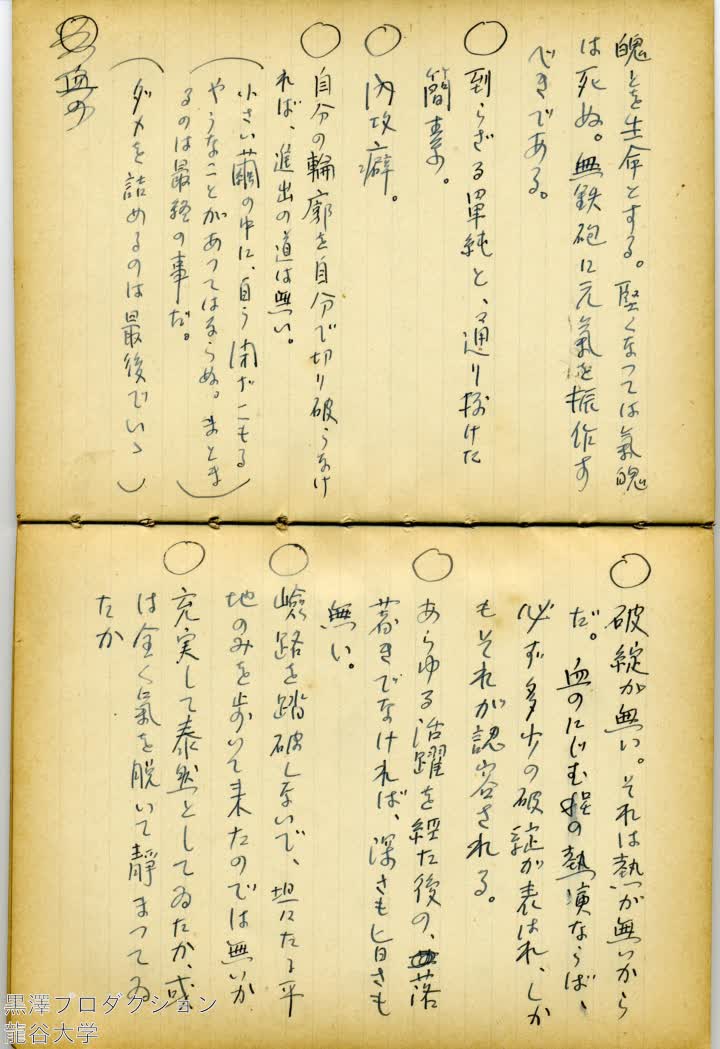 魄とを生命とする。堅くなつては氣魄
は死ぬ。無鉄砲に元氣を振作す
べきである。
○ 到らざる單純と、通り抜けた
簡素。
○ 内攻癖。
○ 自分の輪廓を自分で切り破らなけ
れば、進出の道は無い。
(小さい繭の中に、自ら閉ぢこもる
やうなことがあつてはならぬ。まとま
るのは最終の事だ。)
(ダメを詰めるのは最後でいゝ)
血の
○ 破綻が無い。それは熱が無いから
だ。血のにじむ程の熱演ならば、
必ず多少の破綻が表はれ、しか
もそれが認容される。
○ あらゆる活躍を経た後の、落
着きでなければ、深さも旨さも
無い。
○ 嶮路を踏破しないで、坦々たる平
地のみを歩いて来たのでは無いか
○ 充実して泰然としてゐたか、或
は全く氣を脱いて静まつてゐ
たか
黒澤プロダクション
龍谷大学